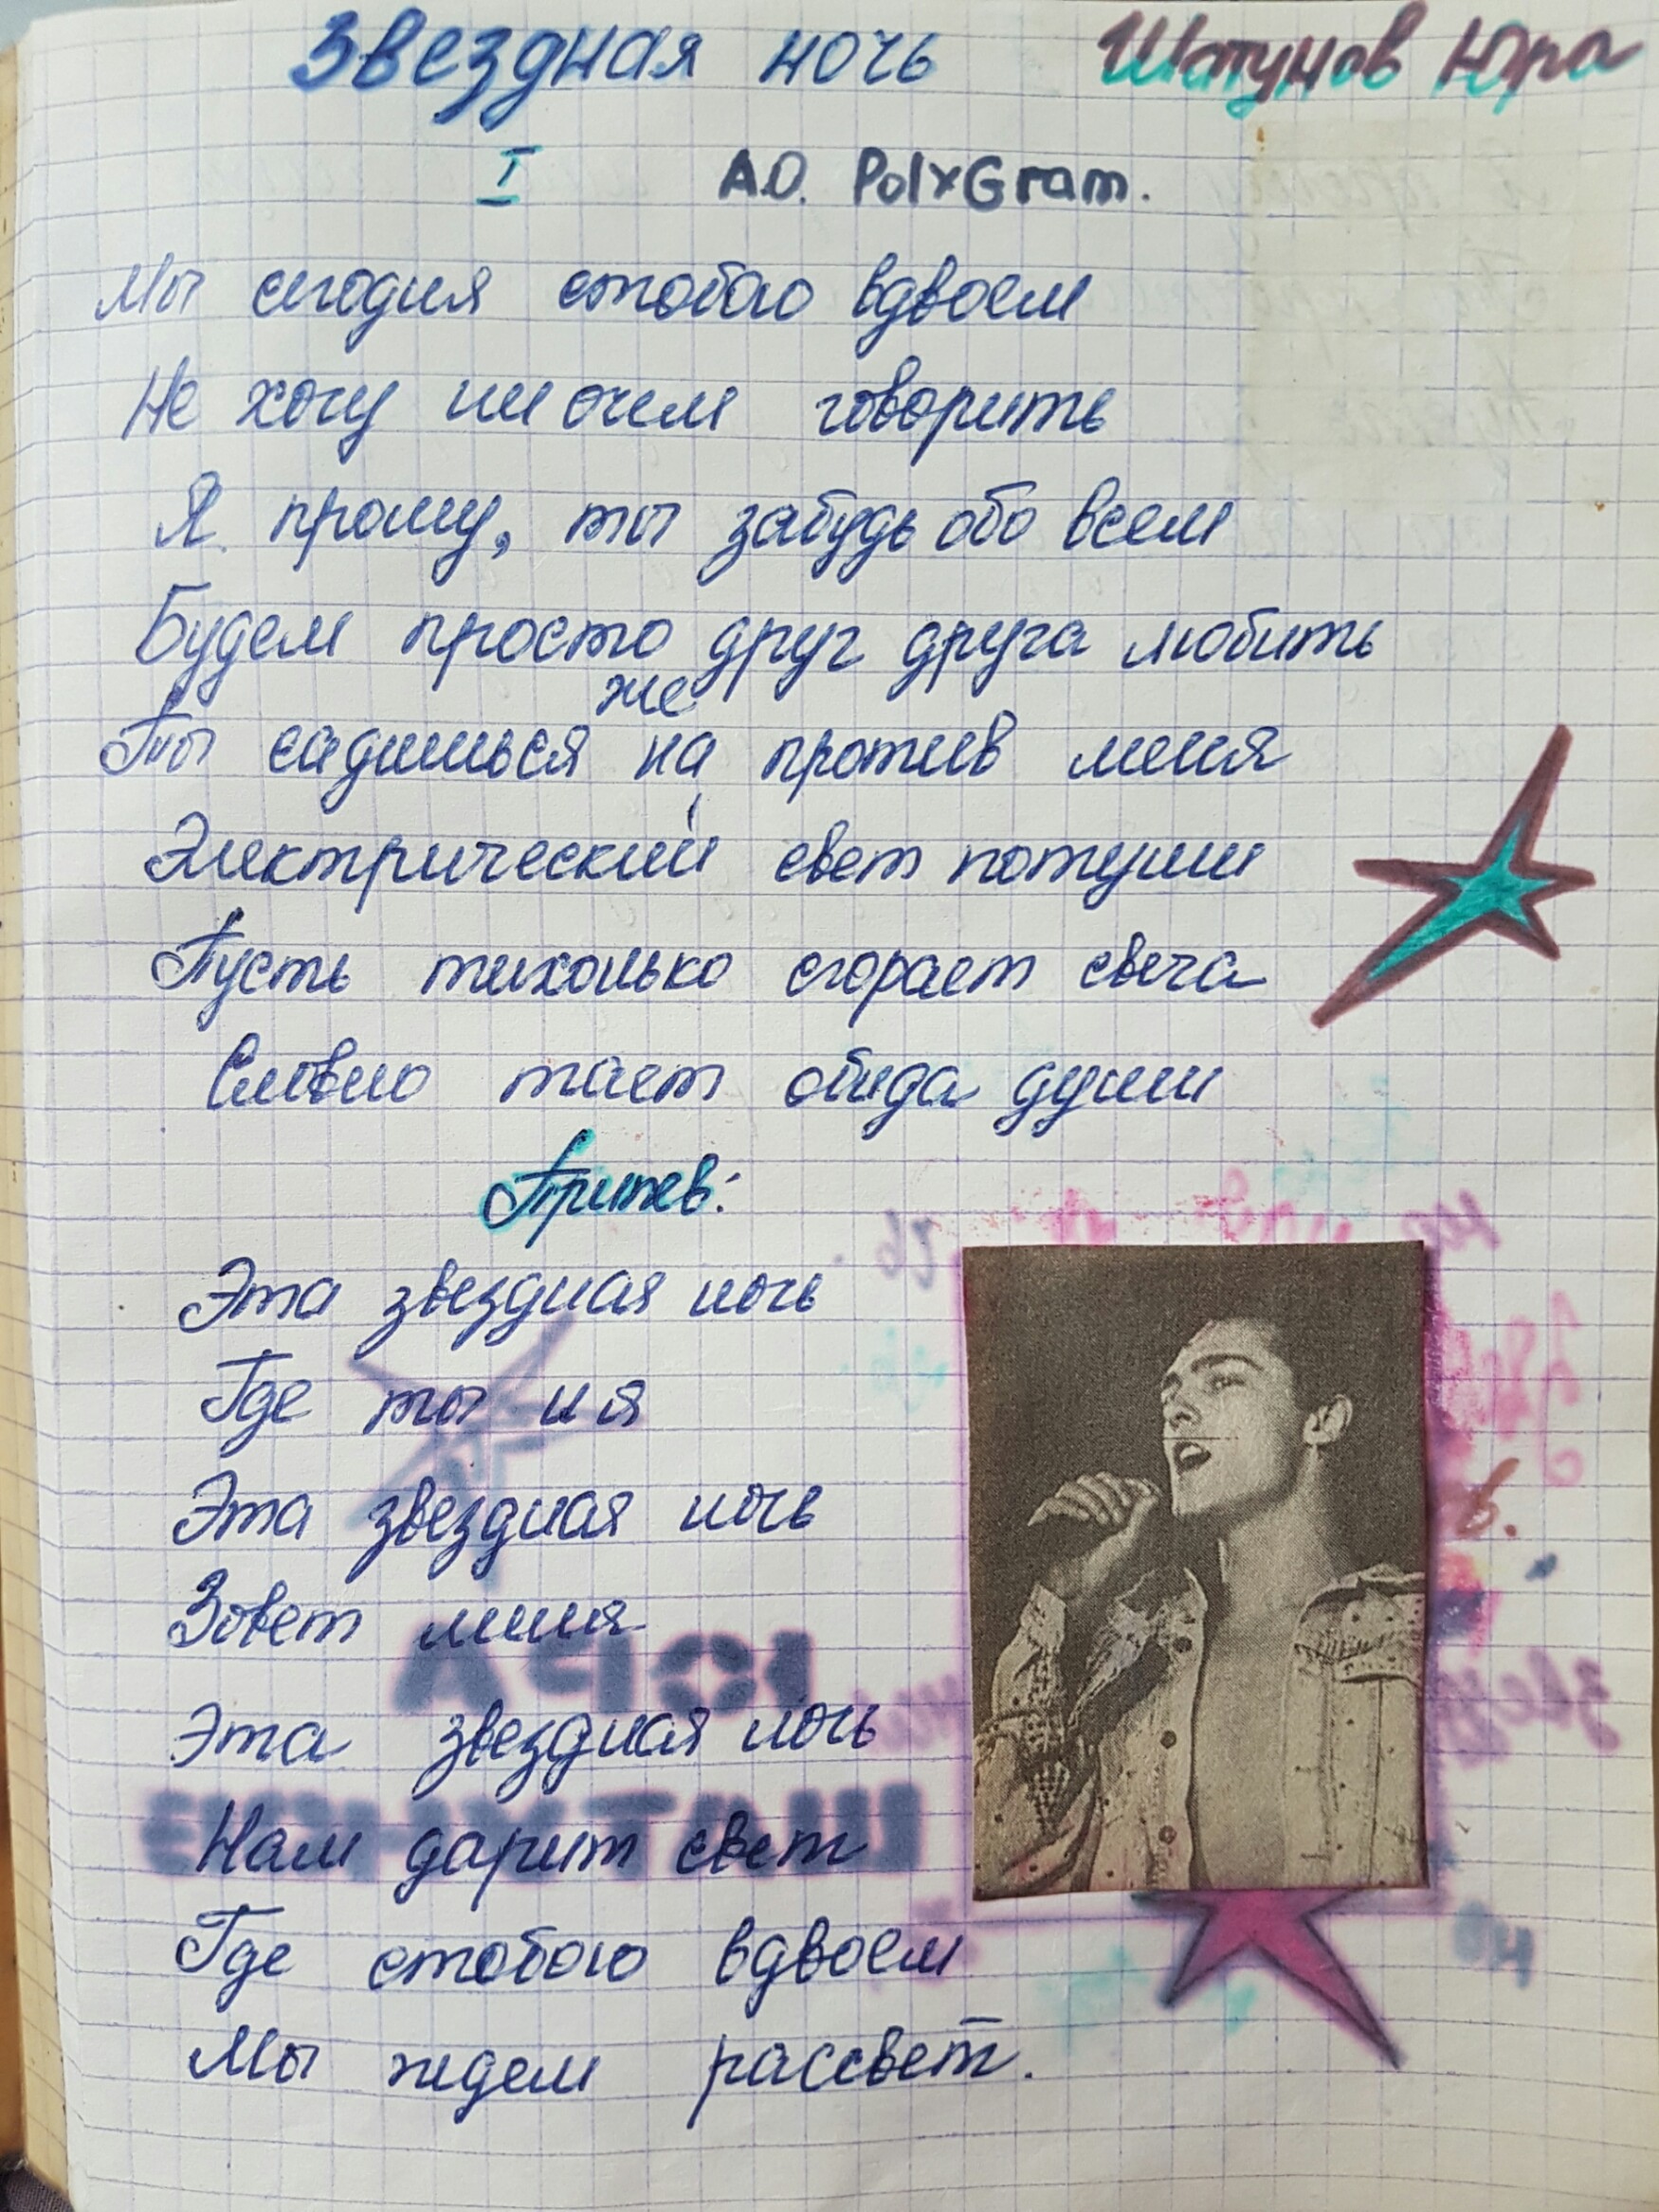 Звездная ночь Шатунов Юра
I A.O. PolyGram.
Мы сегодня стобою вдвоем
Не хочу ни очем говорить
Я прошу, ты забудь обо всем
Будем просто друг друга любить
же
Ты садишься на против меня
Электрический свет потуши
Пусть тихонько сгорает свеча
Словно тает обида души
Припев:
Эта звездная ночь
Где ты и я
Эта звездная ночь
Зовет меня
Эта звездная ночь
Нам дарит свет
Где стобою вдвоем
Мы ждем рассвет.